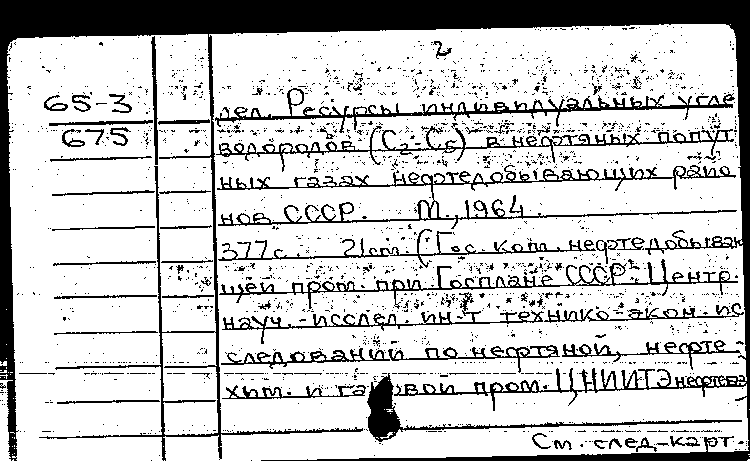 2
65-3
675
дел. Ресурсы индивидуальных угле
водородов (С2-С5) в нефтяных попут
ных газах нефтедобывающих райо
нов СССР. М., 1964.
377с. 21см. (Гос. ком. нефтедобываю
щей пром. при Госплане СССР. Центр.
науч.-исслед. ин-т технико-экон. ис
следований по нефтяной, нефте-
хим. и газовой пром. ЦНИИТЭнефтегаз
См. след-карт.